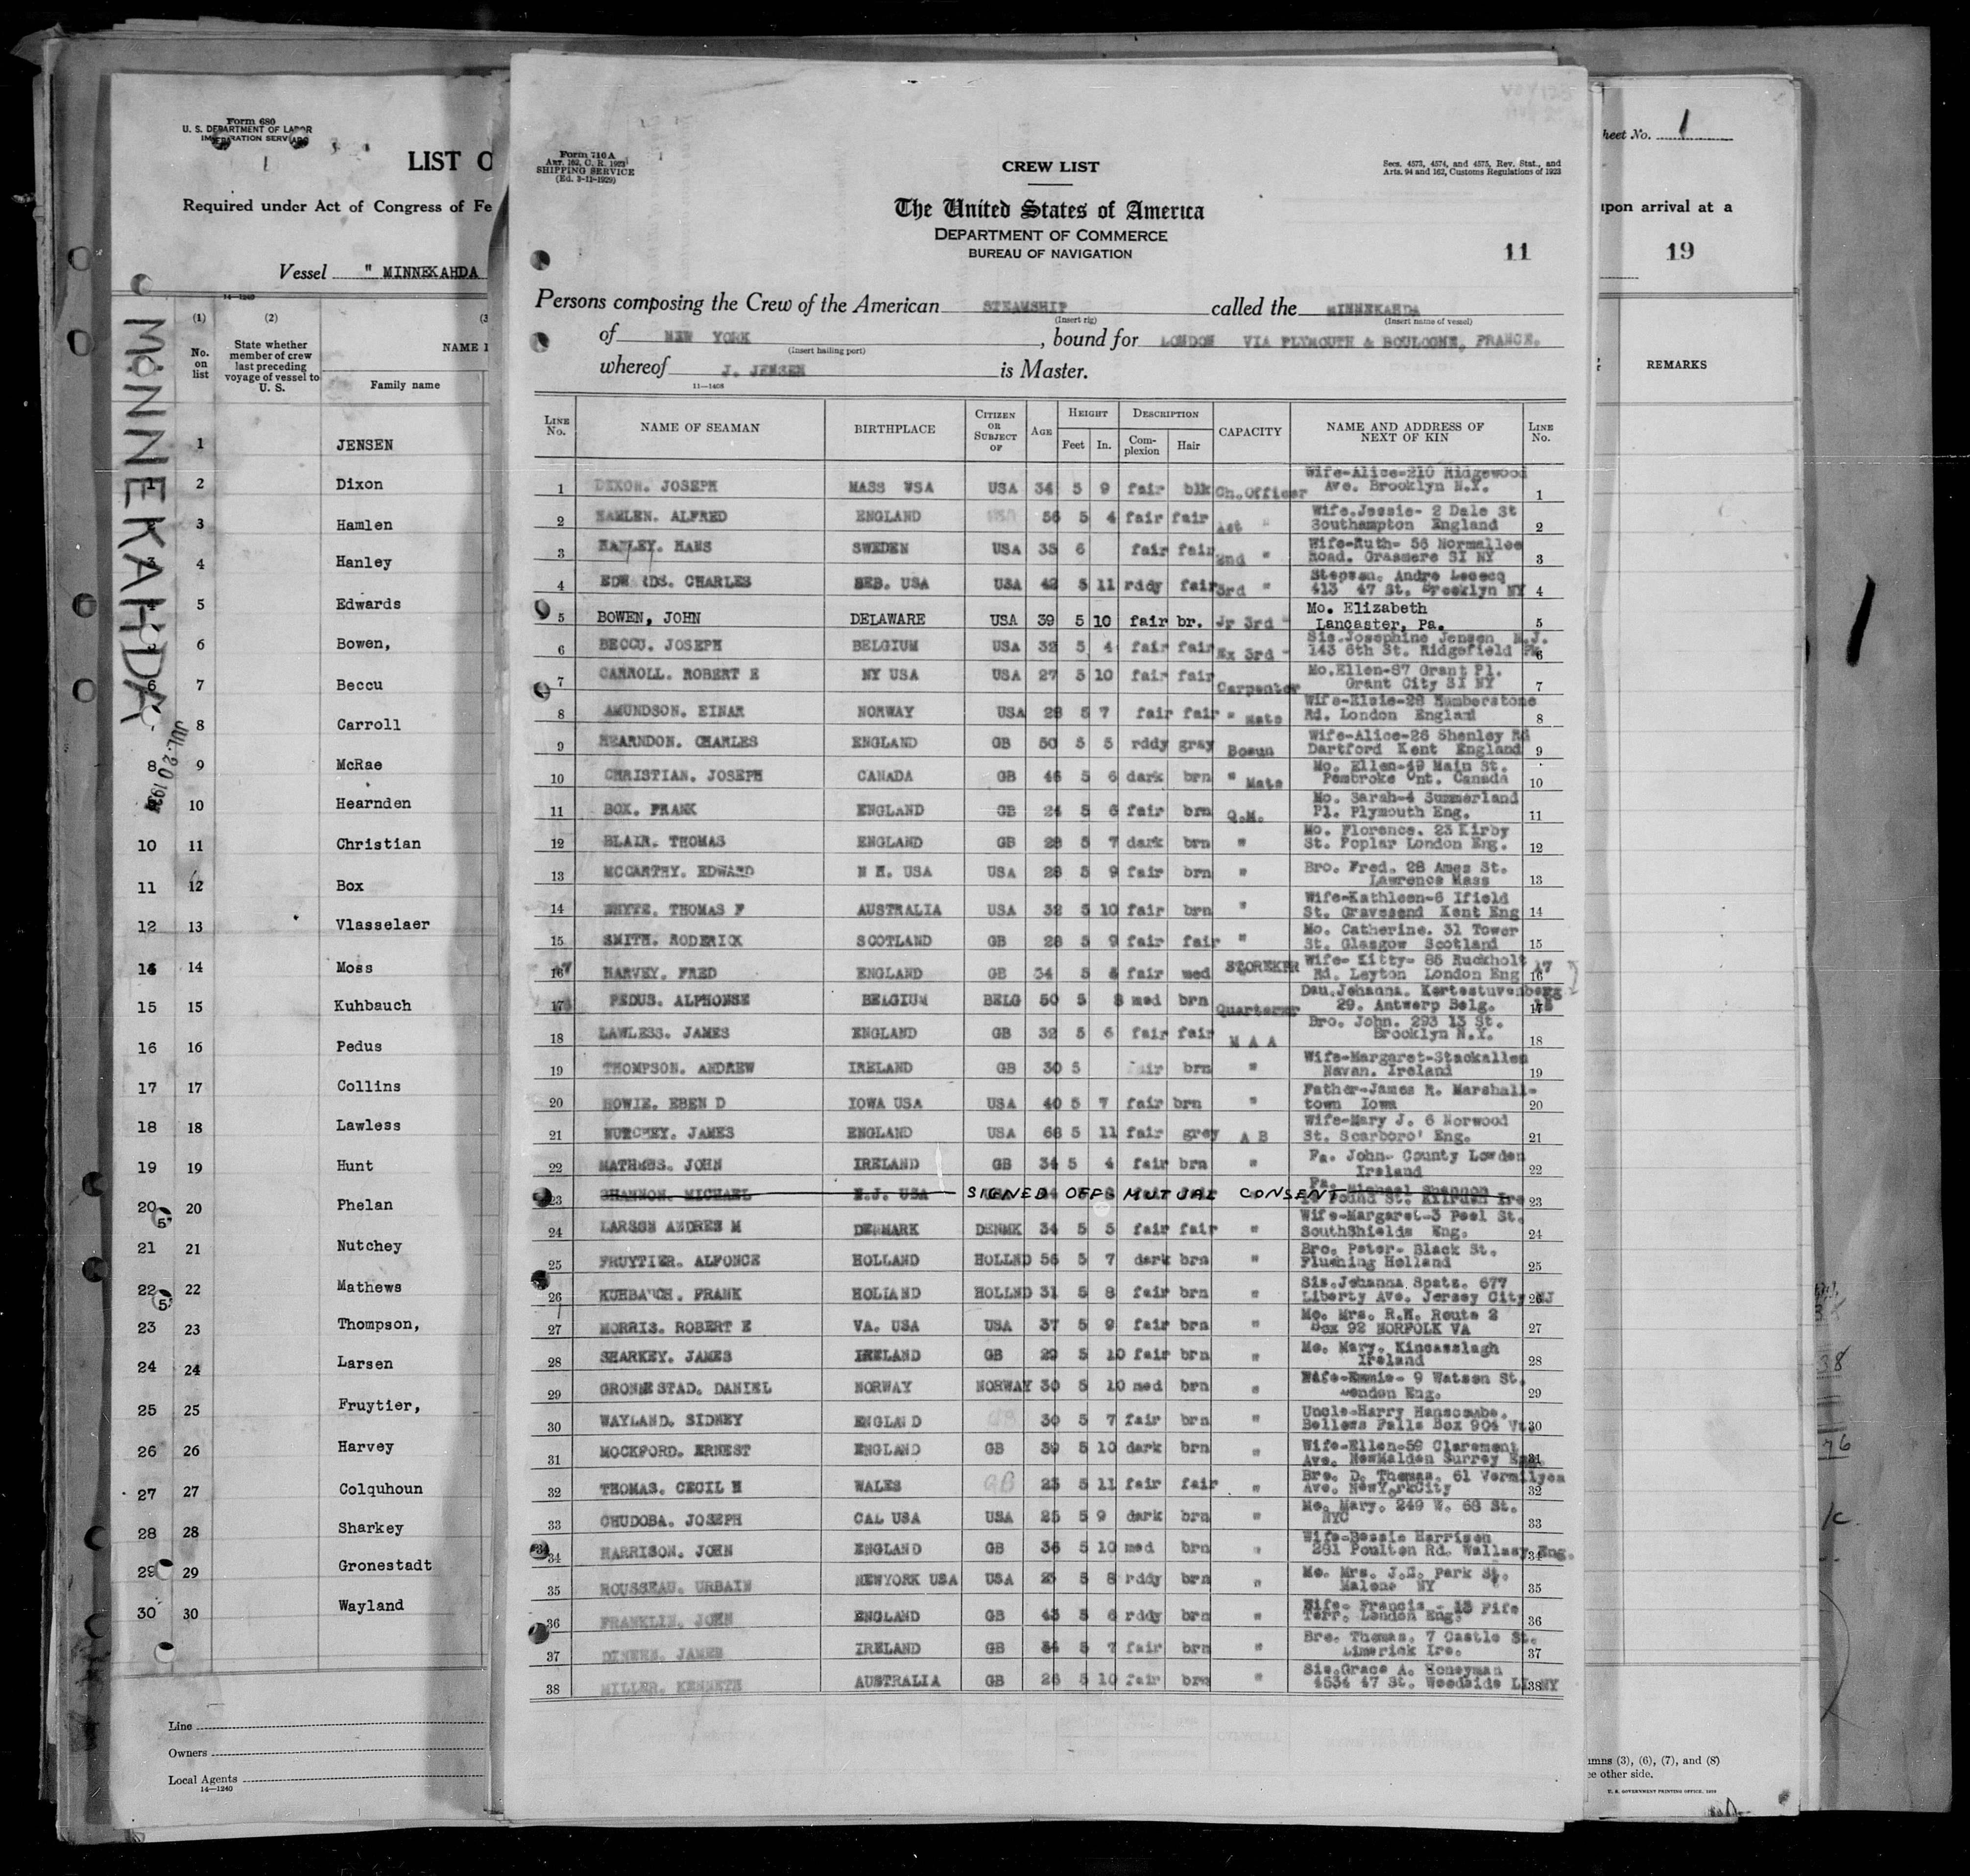 Form 680
U. S. DEPARTMENT OF LABOR
IMMIGRATION SERVICE
LIST O
Required under Act of Congress of Fe
Vessel " MINNEKAHDA
14—1240
MINNEKAHDA
JUL 20 193
(1) (2) (3
No. on list
State whether member of crew last preceding voyage of vessel to U. S.
NAME I
Family name
1 JENSEN
1 2 Dixon
2 3 Hamlen
3 4 Hanley
4 5 Edwards
6 Bowen,
6 7 Beccu
8 Carroll
8 9 McRae
10 Hearnden
10 11 Christian
11 12 Box
12 13 Vlasselaer
14 14 Moss
15 15 Kuhbauch
16 16 Pedus
17 17 Collins
18 18 Lawless
19 19 Hunt
20 20 Phelan
21 21 Nutchey
22 22 Mathews
23 23 Thompson,
24 24 Larsen
25 25 Fruytier,
26 26 Harvey
27 27 Colquhoun
28 28 Sharkey
29 29 Gronestadt
30 30 Wayland
Line
Owners
Local Agents
14—1240
Form 710 A
Art. 162, C. R. 1923
SHIPPING SERVICE
(Ed. 3-11-1929)
CREW LIST
Secs. 4573, 4574, and 4575, Rev. Stat., and
Arts. 94 and 162, Customs Regulations of 1923
The United States of America
DEPARTMENT OF COMMERCE
BUREAU OF NAVIGATION
11
Persons composing the Crew of the American STEAMSHIP called the MINNEKAHDA
(Insert rig) (Insert name of vessel)
of NEW YORK, bound for LONDON VIA PLYMOUTH & BOULOGNE, FRANCE.
(Insert hailing port)
whereof J. JENSEN is Master.
11—1408
LINE No. NAME OF SEAMAN BIRTHPLACE CITIZEN OR SUBJECT OF AGE HEIGHT Feet In. DESCRIPTION Complexion Hair CAPACITY NAME AND ADDRESS OF NEXT OF KIN LINE No.
1 DIXON. JOSEPH MASS USA USA 34 5 9 fair blk Ch.Officer Wife-Alice-210 Ridgewood Ave. Brooklyn N.Y. 1
2 HAMLEN. ALFRED ENGLAND 56 5 4 fair fair 1st " Wife.Jessie- 2 Dale St Southampton England 2
3 HANLEY. HANS SWEDEN USA 35 6 fair fair 2nd " Wife-Ruth- 56 Normallee Road. Grasmere SI NY 3
4 EDWARDS. CHARLES NEB. USA USA 42 5 11 rddy fair 3rd " Stepson. Andre Lececq 413 47 St. Brooklyn NY 4
5 BOWEN, JOHN DELAWARE USA 39 5 10 fair br. Jr 3rd " Mo. Elizabeth Lancaster, Pa. 5
6 BECCU. JOSEPH BELGIUM USA 32 5 4 fair fair Ex 3rd " Sis.Josephine Jensen N.J. 143 6th St. Ridgefield Pk 6
7 CARROLL. ROBERT E NY USA USA 27 5 10 fair fair Carpenter Mo.Ellen-87 Grant Pl. Grant City SI NY 7
8 AMUNDSON. EINAR NORWAY USA 28 5 7 fair fair " Mate Wife-Elsie-28 Humberstone Rd. London England 8
9 HEARNDON. CHARLES ENGLAND GB 50 5 5 rddy gray Bosun Wife-Alice-26 Shenley Rd Dartford Kent England 9
10 CHRISTIAN. JOSEPH CANADA GB 46 5 6 dark brn " Mate Mo. Ellen-49 Main St. Pembroke Ont. Canada 10
11 BOX. FRANK ENGLAND GB 24 5 6 fair brn Q.M. Mo. Sarah-4 Summerland Pl. Plymouth Eng. 11
12 BLAIR. THOMAS ENGLAND GB 28 5 7 dark brn " Mo. Florence. 23 Kirby St. Poplar London Eng. 12
13 MCCARTHY. EDWARD N H. USA USA 28 5 9 fair brn " Bro. Fred. 28 Ames St. Lawrence Mass 13
14 WHYTE. THOMAS F AUSTRALIA USA 32 5 10 fair brn " Wife-Kathleen-6 Ifield St. Gravesend Kent Eng 14
15 SMITH. RODERICK SCOTLAND GB 28 5 9 fair fair " Mo. Catherine. 31 Tower St. Glasgow Scotland 15
16 HARVEY. FRED ENGLAND GB 34 5 fair med STOREKPR Wife- Kitty- 85 Ruckholt Rd. Leyton London Eng 16 17
17 PEDUS. ALPHONSE BELGIUM BELG 50 5 8 med brn Quartermr Dau.Johanna. Kortestuvenberg 29. Antwerp Belg. 17
18 LAWLESS. JAMES ENGLAND GB 32 5 6 fair fair M A A Bro. John. 293 13 St. Brooklyn N.Y. 18
19 THOMPSON. ANDREW IRELAND GB 30 5 fair brn " Wife-Margaret-Stackallen Navan. Ireland 19
20 HOWIE. EBEN D IOWA USA USA 40 5 7 fair brn " Father-James R. Marshall- town Iowa 20
21 NUTCHEY. JAMES ENGLAND USA 68 5 11 fair grey A B Wife-Mary J. 6 Norwood St. Scarboro' Eng. 21
22 MATHEWS. JOHN IRELAND GB 34 5 4 fair brn " Fa. John- County Lowden Ireland 22
23 SHANNON. MICHAEL N.J. USA SIGNED OFF MUTUAL CONSENT Fa. Michael Shannon Pound St. Kilrush Ire 23
24 LARSON ANDREN M DENMARK DENMK 34 5 5 fair fair " Wife-Margaret-3 Peel St. SouthShields Eng. 24
25 FRUYTIER. ALFONCE HOLLAND HOLLND 56 5 7 dark brn " Bro. Peter- Black St. Flushing Holland 25
26 KUHBAUCH. FRANK HOLLAND HOLLND 31 5 8 fair brn " Sis.Johanna Spatz. 677 Liberty Ave. Jersey City NJ 26
27 MORRIS. ROBERT E VA. USA USA 37 5 9 fair brn " Mo. Mrs. R.H. Route 2 Box 92 NORFOLK VA 27
28 SHARKEY. JAMES IRELAND GB 29 5 10 fair brn " Mo. Mary. Kincasslagh Ireland 28
29 GRONNESTAD. DANIEL NORWAY NORWAY 30 5 10 med brn " Wife-Emmie- 9 Watson St. London Eng. 29
30 WAYLAND. SIDNEY ENGLAND GB 30 5 7 fair brn " Uncle-Harry Hanscombe. Bellows Falls Box 904 Vt. 30
31 MOCKFORD. ERNEST ENGLAND GB 39 5 10 dark brn " Wife-Ellen-59 Claremont Ave. NewMalden Surrey Eng. 31
32 THOMAS. CECIL H WALES GB 25 5 11 fair fair " Bro. D. Thomas. 61 Vermilyea Ave. NewYorkCity 32
33 CHUDOBA. JOSEPH CAL USA USA 25 5 9 dark brn " Mo. Mary. 249 W. 68 St. NYC 33
34 HARRISON. JOHN ENGLAND GB 36 5 10 med brn " Wife-Bessie Harrison 281 Poulton Rd. Wallasy Eng. 34
35 ROUSSEAU. URBAIN NEWYORK USA USA 5 8 rddy brn " Mo. Mrs. J.D. Park St. Malone NY 35
36 FRANKLIN. JOHN ENGLAND GB 43 5 6 rddy brn " Wife- Francis - 13 Fife Terr. London Eng. 36
37 DINEEN. JAMES IRELAND GB 34 5 7 fair brn " Bro. Thomas. 7 Castle St. Limerick Ire. 37
38 MILLER. KENNETH AUSTRALIA GB 26 5 10 fair brn " Sis.Grace A. Honeyman 4534 47 St. Woodside LI NY 38
heet No. 1
upon arrival at a
19
REMARKS
1
38
76
umns (3), (6), (7), and (8)
ee other side.
U. S. GOVERNMENT PRINTING OFFICE